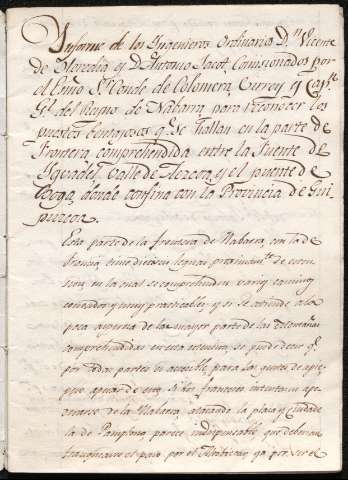 Informe de los Ingenieros Ordinarios D.n Vicente
de Heredia y D.n Antonio Jacot, Comisionados por
el Exmo S.r Conde de Colomera, Virrey y Cap.n
G.l del Reyno de Nabarra para reconocer los
puestos bentajosos q.e se hallan en la parte de
Frontera comprehendida entre la Fuente de
Yguadel, Valle de Aezcoa, y el puente de
Boga, donde confina con la Provincia de Gui
puzcoa.
Esta parte de la frontera de Nabarra, con la de
Francia tiene leguas proximam.te de exten
sion, en la cual se comprehenden varios caminos
y muy practicables, y si se atiende a la
poca de la mayor parte de las montañas
comprehendidas en esta extension, se puede decir q.e
por todas partes es accesible, para las gentes de a pie,
que apesar de esto, si los franceses intentasen apo
derarse de la Nabarra, atacando la plaza y ciudade
la de Pamplona, parece indispensable, que deberian
franquearse el paso por el ya por ser el